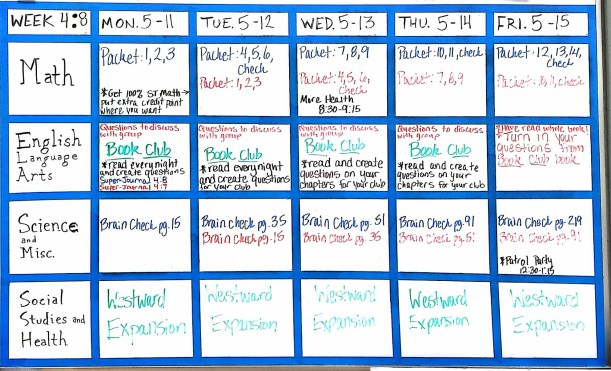 WEEK 4:8
MON. 5-11
TUE. 5-12
WED. 5-13
THU. 5-14
FRI. 5-15
Math
Packet: 1, 2, 3
*Get 100% ST Math →
put extra credit point
where you want
Packet: 4, 5, 6,
check
Packet: 1, 2, 3
Packet: 7, 8, 9
Packet: 4, 5, 6,
check
More Health
8:30-9:15
Packet: 10, 11, check
Packet: 7, 8, 9
Packet: 12, 13, 14,
check
Packet: 10, 11, check
English
Language
Arts
Questions to discuss
with group
Book Club
*read every night
and create questions
Super-Journal 4:8
Super-Journal 4:7
Questions to discuss
with group
Book Club
*read every night
and create questions
for your club
Questions to discuss
with group
Book Club
*read and create
questions on your
chapters for your club
Questions to discuss
with group
Book Club
*read and create
questions on your
chapters for your club
*Have read whole book!
*Turn in your
questions from
Book Club book
Science
and
Misc.
Brain Check pg. 15
Brain Check pg. 35
Brain Check pg. 15
Brain Check pg. 51
Brain Check pg. 35
Brain Check pg. 91
Brain Check pg. 51
Brain Check pg. 219
Brain Check pg. 91
*Patrol Party
12:30-1:15
Social
Studies and
Health
Westward
Expansion
Westward
Expansion
Westward
Expansion
Westward
Expansion
Westward
Expansion